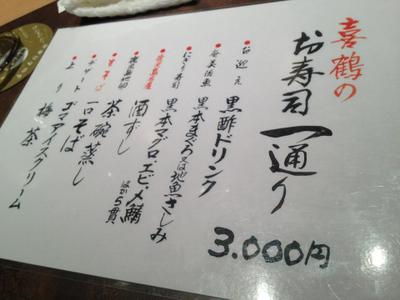 喜鶴の
お寿司一通り
お迎え 黒酢ドリンク
奄美活魚 黒本まぐろ又は地魚さしみ
にぎり寿司 黒本マグロ・エビ・〆鯖
ほか5貫
酒ずし
茶碗蒸し
一口そば
デザート ゴマアイスクリーム
上り 梅茶
3.000円